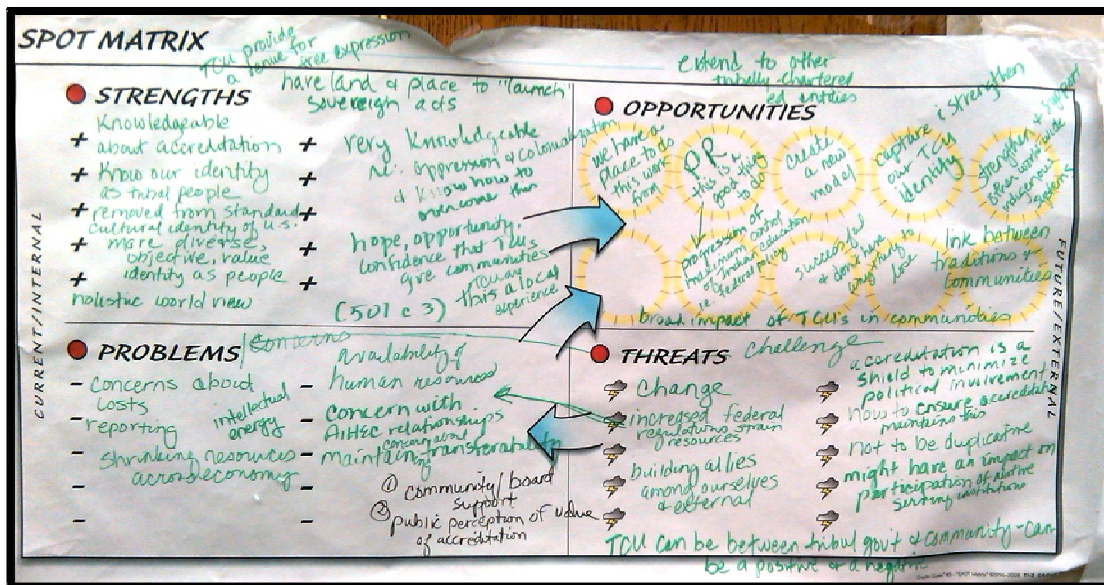 SPOT MATRIX
TCU provide
a venue for
free expression
● STRENGTHS
have land & place to "launch"
sovereign acts
+ Knowledgeable
about accreditation
+ Know our identity
as tribal people
+ removed from standard
cultural identity of U.S.
+ more diverse,
objective, value
+ identity as people
holistic world view
+ very knowledgeable
re: oppression & colonization
+ & know how to
overcome them
+
+ hope, opportunity,
confidence that TCUs
give communities
+ this a local
experience
(501 c 3)
extend to other
tribally chartered
ed entities
● OPPORTUNITIES
we have a
place to do
this work
from
PR
this is a
good thing
to do
create
a new
model
capture & strengthen
our TCU
identity
strengthen & support
other world wide
indigenous
systems
progression of
maximum control
of Indian education
i.e. federal policy
successful
& don't have
anything to
lose
link between
traditions &
communities
broad impact of TCUs in communities
CURRENT/INTERNAL
FUTURE/EXTERNAL
● PROBLEMS/Concerns
- concerns about
costs
- reporting
intellectual
energy
- shrinking resources
across economy
-
-
availability of
- human resources
- concern with
AIHEC relationships
concerns about
- maintain transferability
① community/board
support
② public perception of value
of accreditation
● THREATS challenge
Change
increased federal
regulations strain
resources
building allies
among ourselves
& external
accreditation is a
shield to minimize
political involvement
how to ensure accreditation
maintains this
not to be duplicative
might have an impact on
participation of native
serving institutions
TCU can be between tribal gov't & community - can
be a positive & a negative